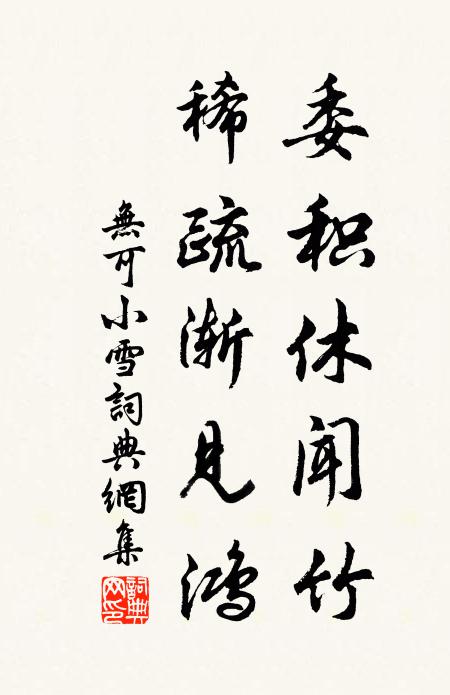 委积休闻竹
稀疏渐见鸿
無可小雪詞典網集
詞典网印